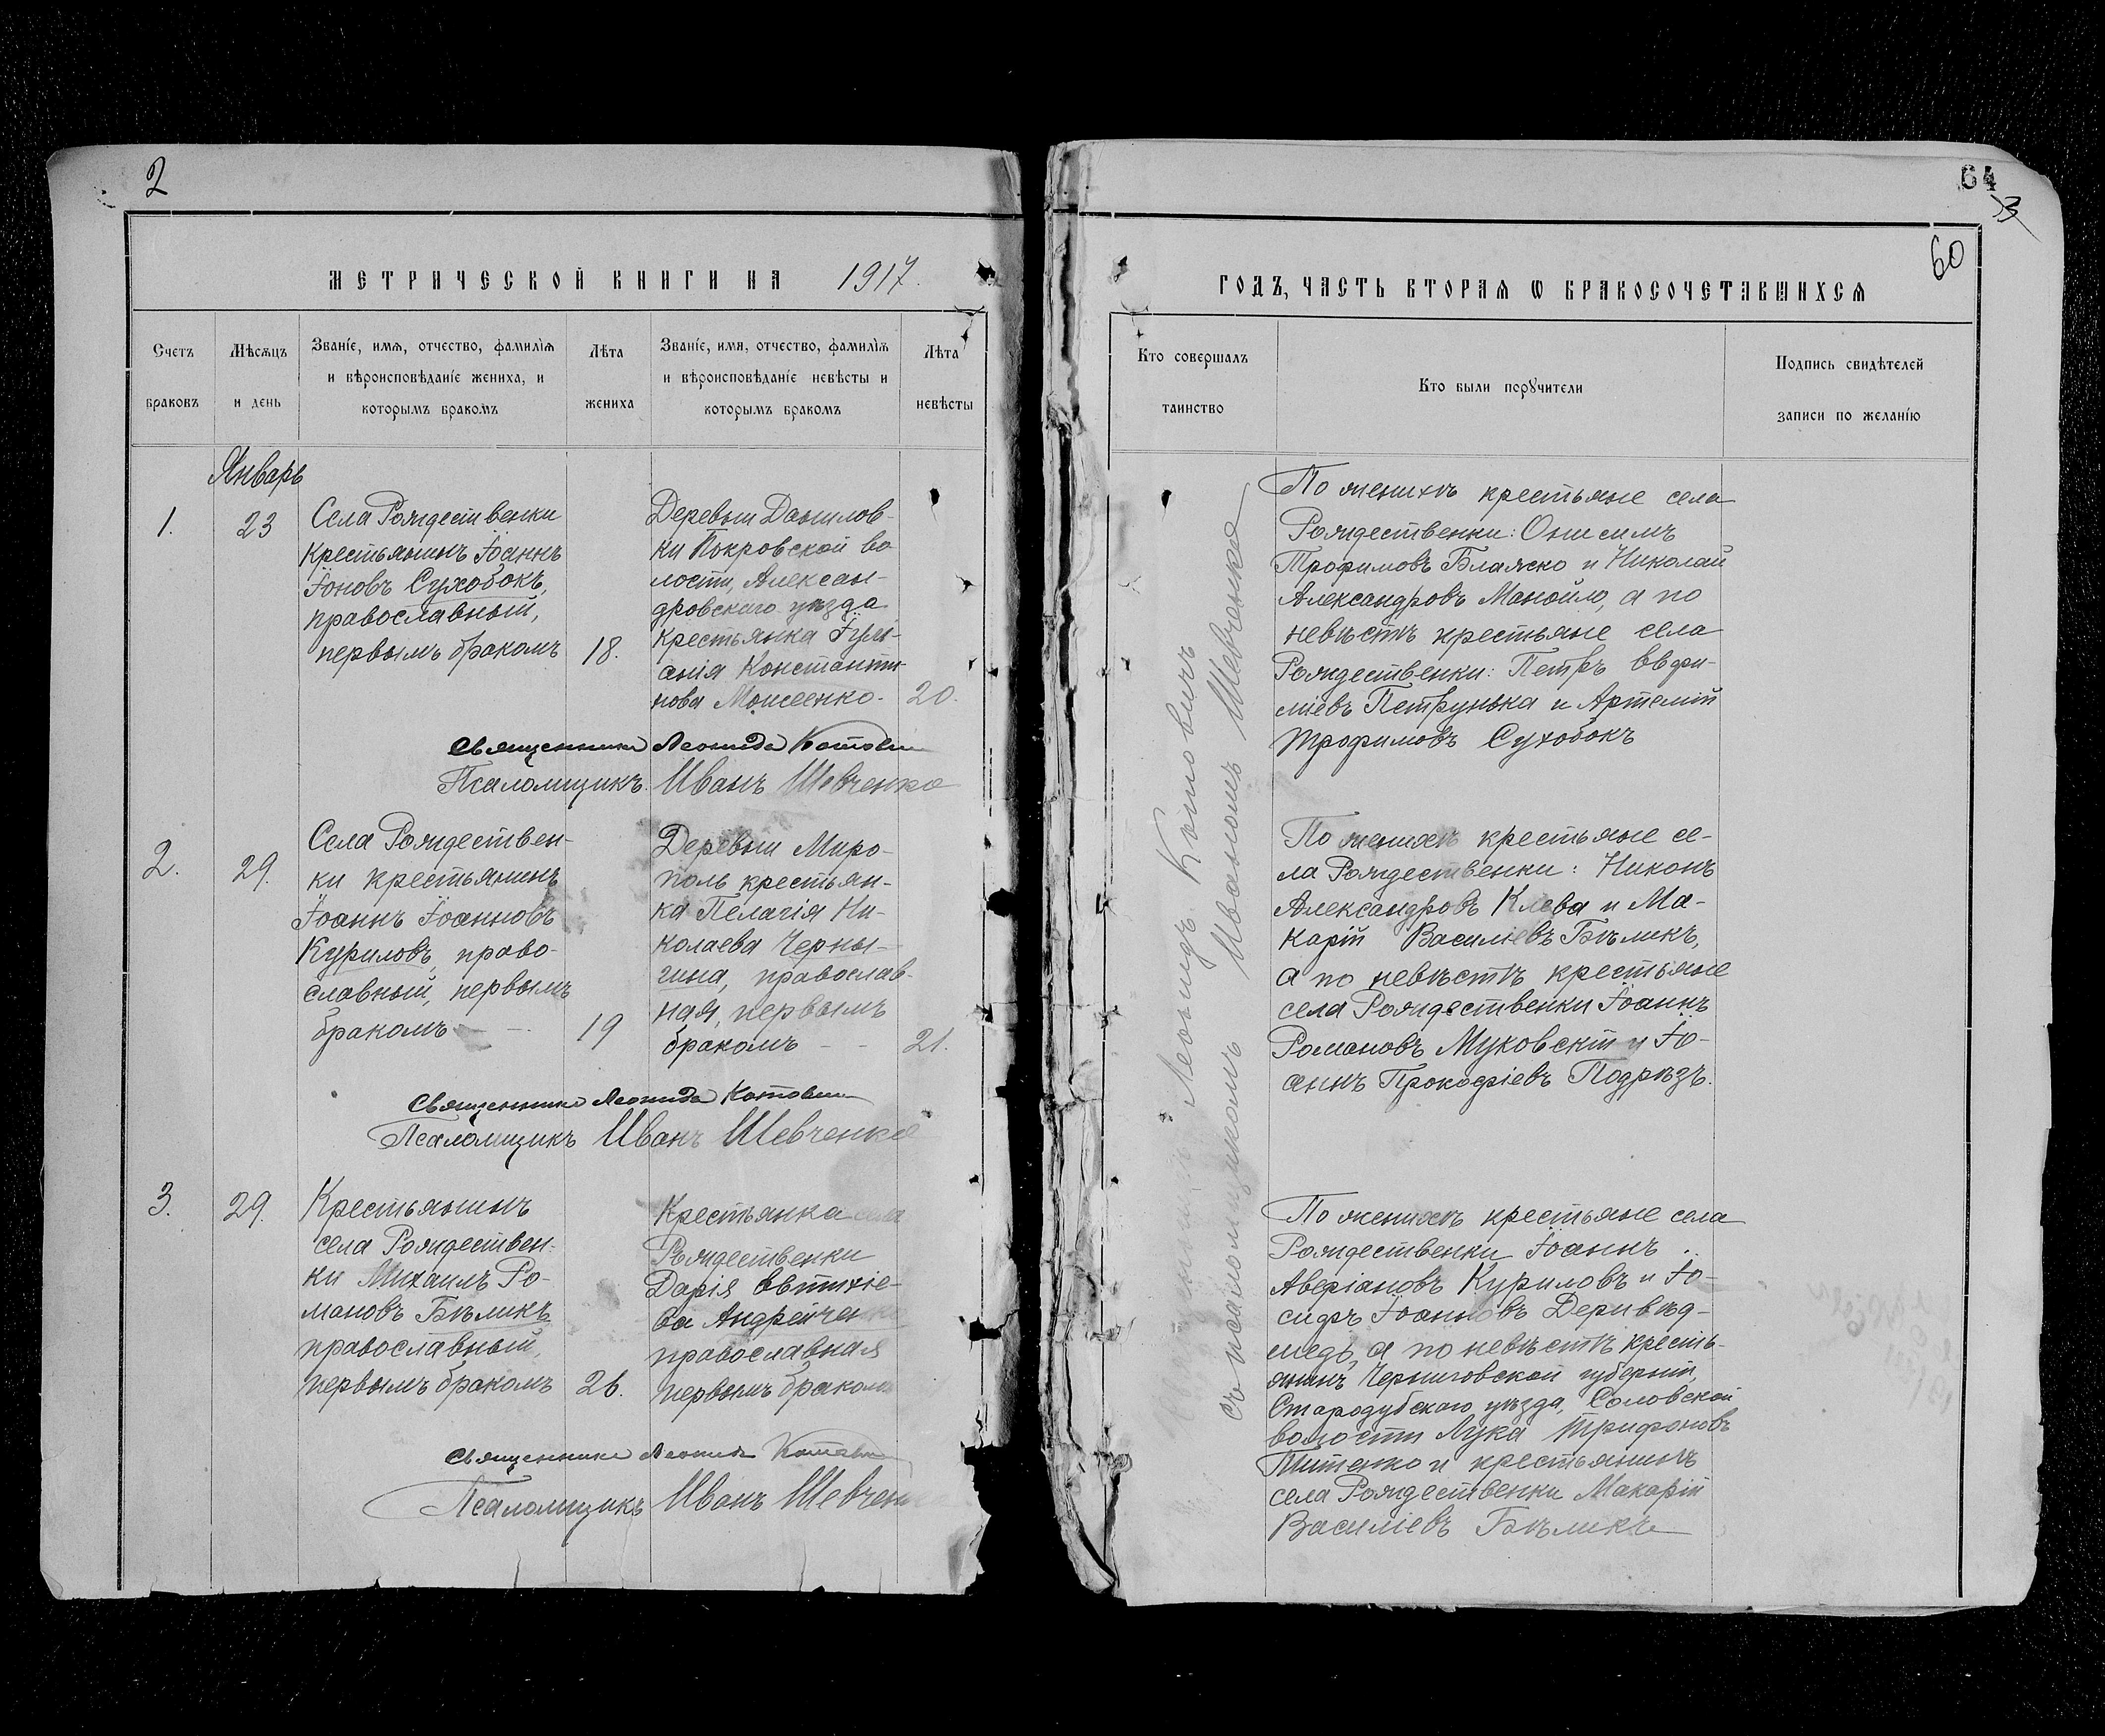 2
МЕТРИЧЕСКОЙ КНИГИ НА 1917.
Счетъ браковъ
Мѣсяцъ и день
Званіе, имя, отчество, фамилія и вѣроисповѣданіе жениха, и которымъ бракомъ
Лѣта жениха
Званіе, имя, отчество, фамилія и вѣроисповѣданіе невѣсты и которымъ бракомъ
Лѣта невѣсты
Январь
1.
23
Села Рождественки
крестьянинъ Іоаннъ
Іоновъ Сухобокъ,
православный,
первымъ бракомъ
18.
Деревни Данилов-
ки Покровской во
лости, Алексан-
дровскаго уѣзда
крестьянка Іули-
анія Константи-
нова Моисеенко.
20.
Священникъ Леонидъ Котович
Псаломщикъ Иванъ Шевченко
2.
29.
Села Рождествен-
ки крестьянинъ
Іоаннъ Іоанновъ
Куриловъ, право-
славный, первымъ
бракомъ
19
Деревни Миро-
поль крестьян-
ка Пелагія Ни-
колаева Черны-
гина, православ-
ная, первымъ
бракомъ
21.
Священникъ Леонидъ Котович
Псаломщикъ Иванъ Шевченко
3.
29.
Крестьянинъ
села Рождествен-
ки Михаилъ Ро-
мановъ Бѣликъ
православный,
первымъ бракомъ
26.
Крестьянка села
Рождественки
Дарія Евтихіе-
ва Андрейченко
православная
первымъ бракомъ
Священникъ Леонидъ Котович
Псаломщикъ Иванъ Шевченко
64
3
60
ГОДЪ, ЧАСТЬ ВТОРАЯ Ѡ БРАКОСОЧЕТАВШИХСЯ
Кто совершалъ таинство
Кто были поручители
Подпись свидѣтелей записи по желанію
Леонидъ Котовичъ
съ псаломщикомъ Иваномъ Шевченко
По женихѣ крестьяне села
Рождественки: Онисимъ
Трофимовъ Блажко и Николай
Александровъ Манойло, а по
невѣстѣ крестьяне села
Рождественки: Петръ Евфи-
міевъ Петрунька и Артемій
Трофимовъ Сухобокъ
По женихѣ крестьяне се-
ла Рождественки: Никонъ
Александровъ Клева и Ма-
карій Василіевъ Бѣликъ,
а по невѣстѣ крестьяне
села Рождественки Іоаннъ
Романовъ Муховскій и Іо-
аннъ Прокофіевъ Подрѣзъ.
По женихѣ крестьяне села
Рождественки Іоаннъ
Аверіановъ Куриловъ и Іо-
сифъ Іоанновъ Деривѣд-
медь, а по невѣстѣ кресть-
янинъ Черниговской губерніи,
Стародубскаго уѣзда, Соловской
волости Лука Трифоновъ
Титенко и крестьянинъ
села Рождественки Макарій
Василіевъ Бѣликъ